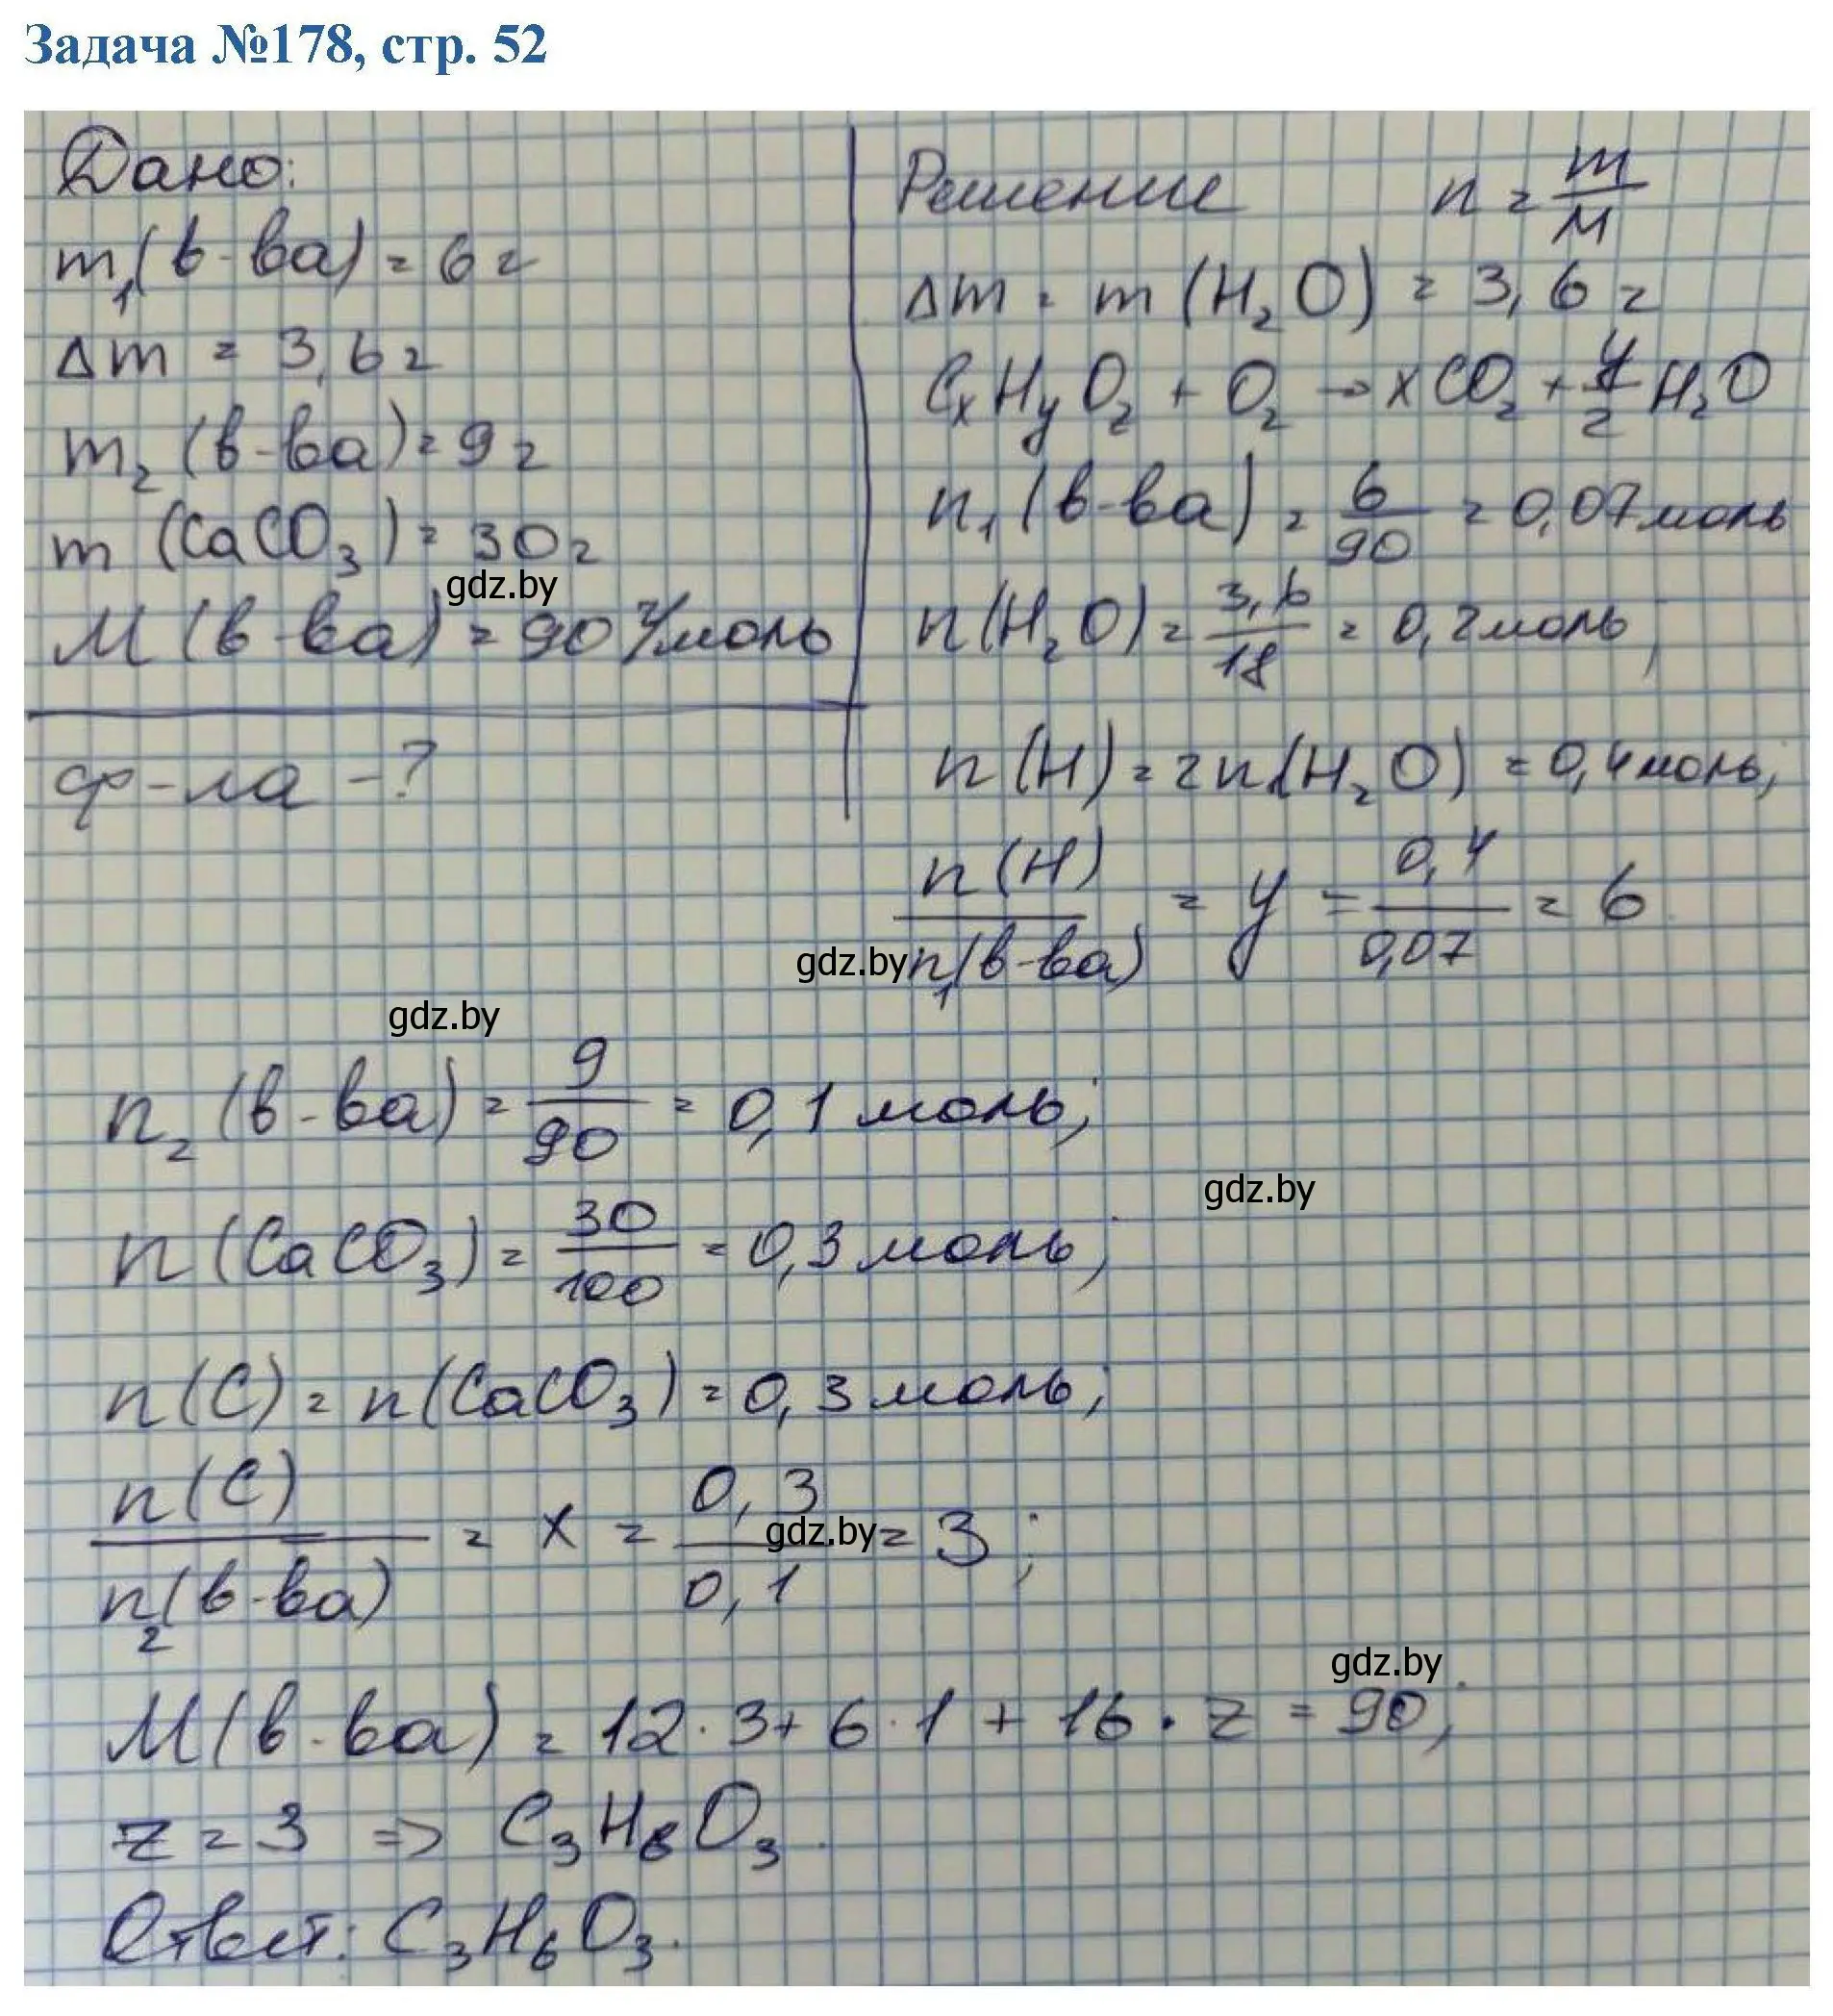 Задача №178, стр. 52
Дано:
m₁(в-ва) = 6 г
Δm = 3,6 г
m₂(в-ва) = 9 г
m(CaCO₃) = 30 г
gdz.by
M(в-ва) = 90 г/моль
ф-ла - ?
Решение n = m/M
Δm = m(H₂O) = 3,6 г
CₓHᵧO₂ + O₂ → xCO₂ + y/2 H₂O
n₁(в-ва) = 6/90 = 0,07 моль
n(H₂O) = 3,6/18 = 0,2 моль;
n(H) = 2n(H₂O) = 0,4 моль;
n(H)/n₁(в-ва) = y = 0,4/0,07 = 6
gdz.by
gdz.by
n₂(в-ва) = 9/90 = 0,1 моль;
gdz.by
n(CaCO₃) = 30/100 = 0,3 моль;
n(C) = n(CaCO₃) = 0,3 моль;
n(C)/n₂(в-ва) = x = 0,3/0,1 = 3;
gdz.by
gdz.by
M(в-ва) = 12·3 + 6·1 + 16·z = 90;
z = 3 => C₃H₆O₃.
Ответ: C₃H₆O₃.